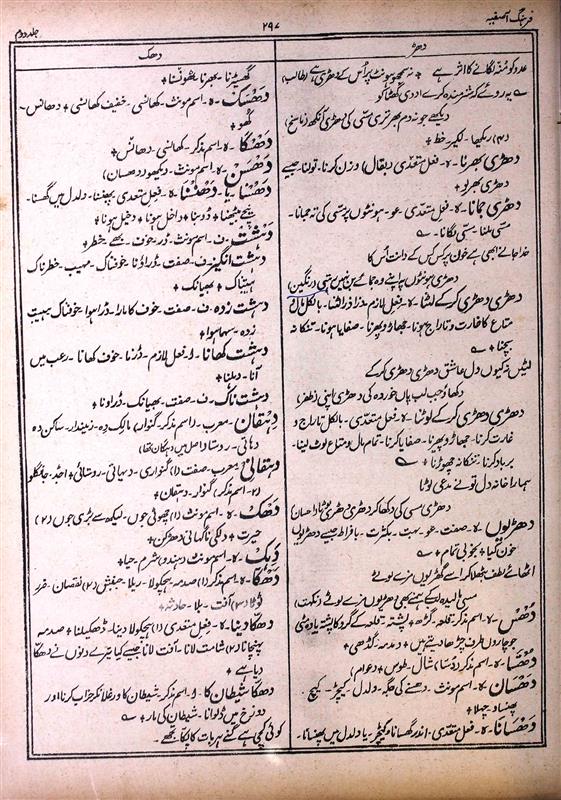 فرہنگ آصفیہ
۲۹۷
جلد دوم
دھڑ
عدو کو منہ لگانے کا اثر ہے + نہ سمجھو ہونٹ پر اُس کے دھڑی ہے (طالب)
یہ روئے کہ شرمندہ کرے اودی گھٹا کو
دیکھے جو نہ دم بھر تری مسّی کی دھڑی آنکھ (ناسخ)
(۴) ریکھا۔ لکیر۔ خط +
دھڑی بھرنا۔ ہ۔ فعل متعدی (بقال) وزن کرنا۔ تولنا۔ جیسے
دھڑی بھرلو +
دھڑی جمانا۔ ہ۔ فعل متعدی۔ عو۔ ہونٹوں پر مسّی کی تہ جمانا۔
مسّی ملنا۔ مسّی لگانا۔
خدا جانے ابھی ہے خون پر کس کس کے دانت اُس کا
دھڑی ہونٹوں پہ اپنے وہ جمائے بن نہیں رہتی (رنگین)
دھڑی دھڑی کر کے لُٹنا۔ ہ۔ فعل لازم۔ ذرا ذرا لُٹنا۔ بالکل مال
متاع کا غارت و تاراج ہونا۔ جھاڑو پھرنا۔ صفایا ہونا۔ تنکا نہ
بچنا +
لٹیں نہ کیوں دل عاشق دھڑی دھڑی کر کے
دکھاؤ جب لب پاں خوردہ کی دھڑی اپنی (ظفر)
دھڑی دھڑی کر کے لوٹنا۔ ہ۔ فعل متعدی۔ بالکل تاراج و
غارت کرنا۔ جھاڑو پھیرنا۔ صفایا کرنا۔ تمام مال و متاع لوٹ لینا۔
برباد کرنا۔ تنکا نہ چھوڑنا +
ہمارا خانہ دل تو نے مدعی لوٹا
دھڑی مسی کی دکھا کر دھڑی دھڑی لوٹا (احسان)
دھڑیوں۔ ہ۔ صفت۔ عو۔ بہت۔ بکثرت۔ بافراط جیسے دھڑیوں
خون گیا + بخوبی تمام +
اٹھائے لطف بٹھلا کر اسے گھڑیوں مزے لوٹے
مسی مالیدہ لب کے ہمنے بھی دھڑیوں مزے لوٹے (نکہت)
دھُس۔ ہ۔ اسم مذکر۔ قلعہ۔ گڑھ + پشتہ۔ قلعہ کے گرد کا پشتہ یا وہ مٹی
جو چاروں طرف چڑھا دیتے ہیں + دمدمہ۔ گڈھی +
دھُسّا۔ ہ۔ اسم مذکر (دُسّا) شال۔ طوس + (عوام)
دھسان۔ ہ۔ اسم مونث۔ دھسنے کی جگہ۔ دلدل۔ کیچڑ۔ کیچ۔
پھنساؤ۔ چہلا +
دھسانا۔ ہ۔ فعل متعدی۔ اندر گھسانا + کیچڑ۔ یا دلدل میں پھنسانا۔
دھک
گھسیڑنا۔ بھرنا۔ ٹھونسنا +
دھسک۔ ہ۔ اسم مونث۔ کھانسی۔ خفیف کھانسی + دھانس۔
ٹھو +
دھسکا۔ ہ۔ اسم مذکر۔ کھانسی۔ دھانس +
دھسن۔ ہ۔ اسم مونث۔ دیکھو (دھسان)
دھسنا۔ یا۔ دھنسنا۔ ہ۔ فعل متعدی۔ پھنسنا۔ دلدل میں گھسنا۔
بیچ بیٹھنا + ڈوبنا + داخل ہونا + دخیل ہونا +
دہشت۔ ف۔ اسم مونث۔ ڈر۔ خوف۔ بھے۔ خطر +
دہشت انگیز۔ ف۔ صفت۔ ڈراؤنا۔ خوفناک۔ مہیب۔ خطرناک
ہیبتناک + بھیانک +
دہشت زدہ۔ ف۔ صفت۔ خوف کا مارا۔ ڈرا ہوا۔ خوفناک۔ ہیبت
زدہ۔ سہما ہوا +
دہشت کھانا۔ ا۔ فعل لازم۔ ڈرنا۔ خوف کھانا۔ رعب میں
آنا۔ دہلنا +
دہشت ناک۔ ف۔ صفت۔ بھیانک۔ ڈراونا +
دہقان۔ معرب۔ اسم مذکر۔ گنوار۔ مالک دِہ۔ زمیندار۔ ساکن دہ
دہاتی۔ روستا (اصل میں دہگان تھا)
دہقانی۔ معرب۔ صفت (۱) گنواری۔ دہہاتی۔ روستائی + اجڈ۔ جانگلو
(۲۔ اسم مذکر) گنوار۔ دہقان +
دھک۔ ہ۔ اسم مونث (۱) چھوٹی جوں۔ لیکھ سے بڑی جوں (۲)
حیرت + دل کی ناگہانی دھڑکن +
دہک۔ ہ۔ اسم مونث (ہندو) شرم۔ حیا +
دھکا۔ ہ۔ اسم مذکر (۱) صدمہ۔ ہچکولا۔ ریلا۔ جنبش (۲) نقصان۔ ضرر
ٹوٹا (۳) آفت۔ بلا۔ حادثہ +
دھکا دینا۔ ہ۔ فعل متعدی (۱) ہچکولا دینا۔ ڈھکیلنا + صدمہ
پہنچانا (۲) شامت لانا۔ آفت لانا۔ جیسے کیا تیرے دنوں نے دھکا
دیا ہے +
دھکا شیطان کا۔ ا۔ اسم مذکر۔ شیطان کا ورغلا کر خراب کرنا اور
دوزخ میں ڈلوانا۔ شیطان کی مار +
کوئی کہتی ہے کہنے ہر بات کا لپکا تجھے۔